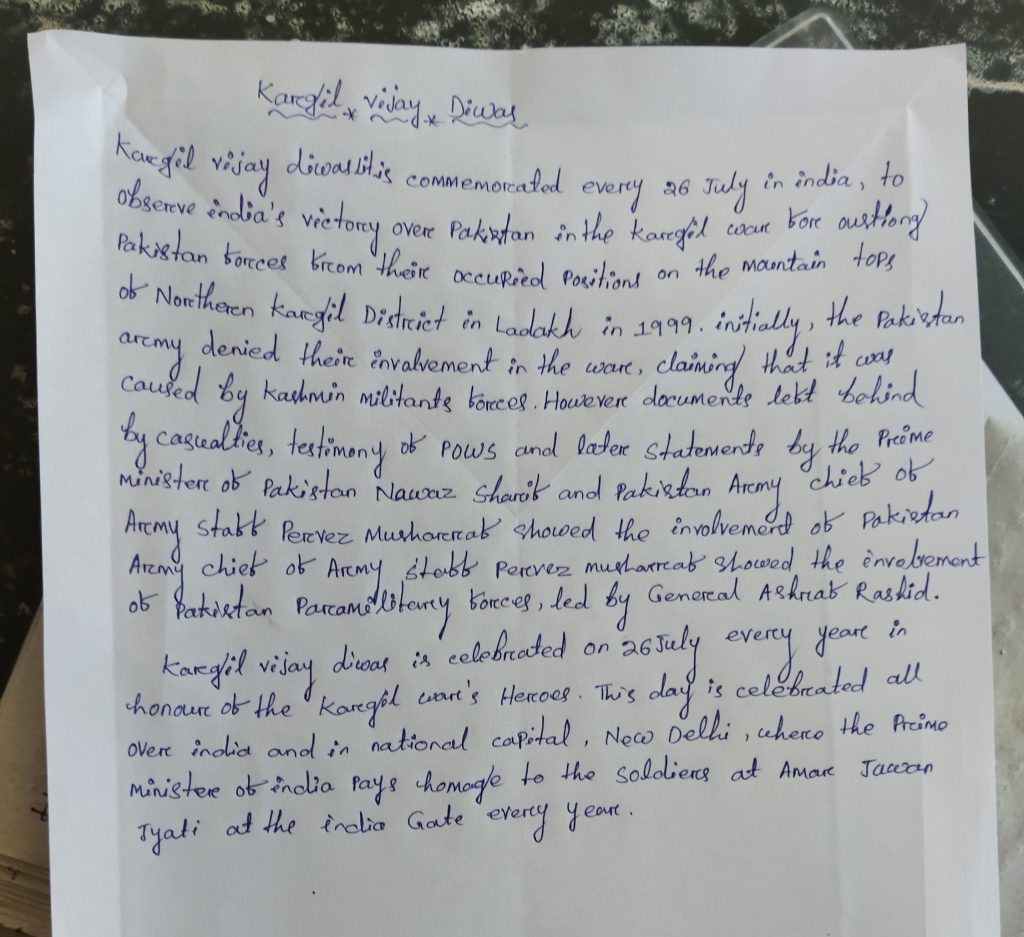 Kargil * vijay * Diwas
Kargil vijay diwas litis commemorated every 26 July in india, to
observe india's victory over Pakistan in the Kargil war for oustiong
Pakistan forces from their occupied Positions on the mountain tops
of Northern Kargil District in Ladakh in 1999. initially, the Pakistan
army denied their invalvement in the war, claiming that it was
caused by kashmin militants forces. However documents left behind
by casualties, testimony of POWS and later statements by the Prime
minister of Pakistan Nawaz Sharif and Pakistan Army chief of
Army staff Pervez Musharraf showed the involvement of Pakistan
Army chief of Army staff Pervez musharraf showed the involvement
of Pakistan Paramilitary forces, led by General Ashraf Rashid.
Kargil vijay diwas is celebrated on 26 July every year in
honour of the Kargil war's Heroes. This day is celebrated all
over india and in national capital, New Delhi, where the Prime
minister of india Pays homage to the soldiers at Amar Jawan
Jyati at the india Gate every year.